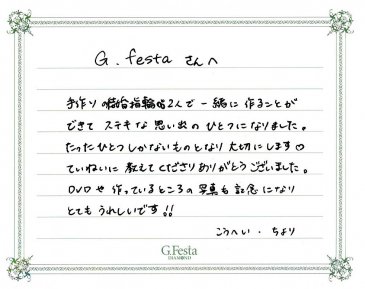 G.festa さんへ
手作りの結婚指輪を2人で一緒に作ることが
できて ステキな思い出のひとつになりました。
たったひとつしかないものとなり大切にします♡
ていねいに教えてくださりありがとうございました。
DVDや作っているところの写真も記念になり
とてもうれしいです!!
こうへい・ちより
G.Festa
DIAMOND